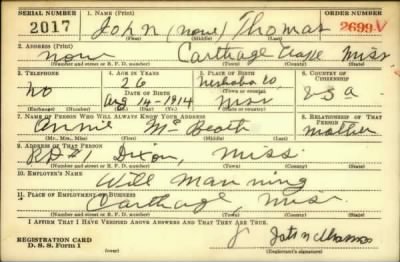 SERIAL NUMBER 1. NAME (Print) ORDER NUMBER
2017 John (none) Thomas 2699 V
(First) (Middle) (Last)
2. ADDRESS (Print)
none Carthage Miss
(Number and street or R. F. D. number) (Town) (County) (State)
3. TELEPHONE 4. AGE IN YEARS 5. PLACE OF BIRTH 6. COUNTRY OF CITIZENSHIP
no 26 Neshoba Co.
DATE OF BIRTH
Aug 14-1914 Miss U S A
(Exchange) (Number) (Mo.) (Day) (Yr.) (State or country)
7. NAME OF PERSON WHO WILL ALWAYS KNOW YOUR ADDRESS 8. RELATIONSHIP OF THAT PERSON
Annie McBeath mother
(Mr., Mrs., Miss) (First) (Middle) (Last)
9. ADDRESS OF THAT PERSON
RFD#1 Dixon, Miss
(Number and street or R. F. D. number) (Town) (County) (State)
10. EMPLOYER'S NAME
Will Manning
11. PLACE OF EMPLOYMENT OR BUSINESS
Carthage, Miss
(Number and street or R. F. D. number) (Town) (County) (State)
I AFFIRM THAT I HAVE VERIFIED ABOVE ANSWERS AND THAT THEY ARE TRUE.
REGISTRATION CARD
D. S. S. Form 1 (Registrant's signature)